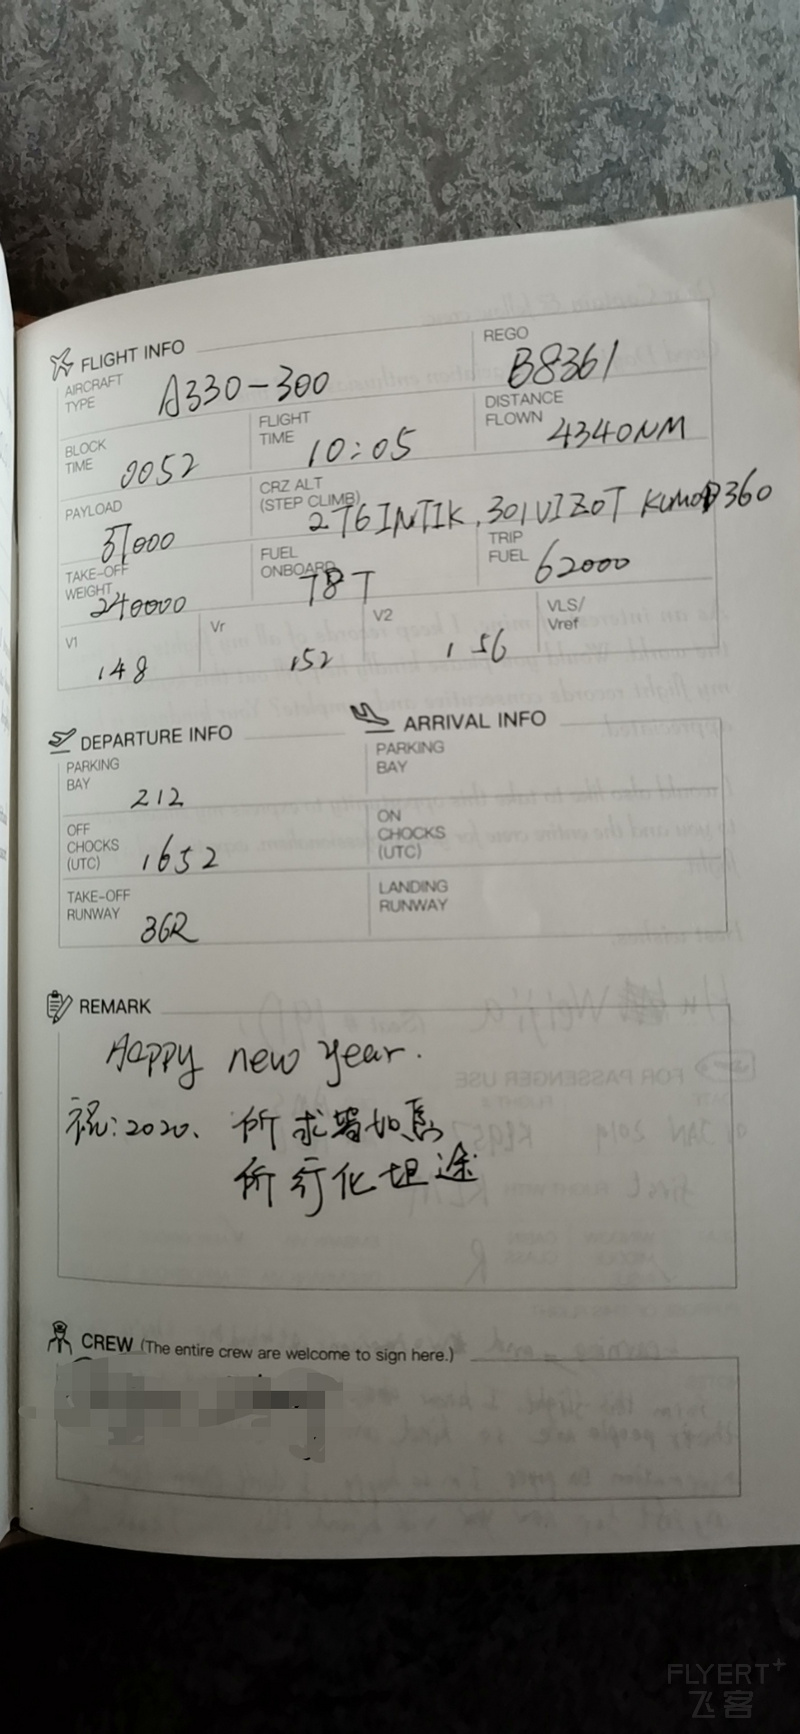 FLIGHT INFO
AIRCRAFT TYPE A330-300
REGO B8361
BLOCK TIME 0052
FLIGHT TIME 10:05
DISTANCE FLOWN 4340NM
PAYLOAD 37000
CRZ ALT (STEP CLIMB) 276 INTIK, 301 VIZOT KUMOD 360
TAKE-OFF WEIGHT 240000
FUEL ONBOARD 78T
TRIP FUEL 62000
V1 148
Vr 152
V2 156
VLS/Vref
DEPARTURE INFO
ARRIVAL INFO
PARKING BAY 212
PARKING BAY
OFF CHOCKS (UTC) 1652
ON CHOCKS (UTC)
TAKE-OFF RUNWAY 36R
LANDING RUNWAY
REMARK
Happy new year.
祝:2020、所求皆如愿
所行化坦途
CREW (The entire crew are welcome to sign here.)
FLYERT+
飞客